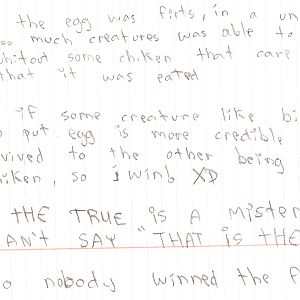 the egg was firts, in a un
oo much creatures was able to
whitout some chiken that care
that it was eated
if some creature like bi
o put egg is more credible
vived to the other being
hiken, so i winb XD
THE TRUE iS A MiSTER
AN'T SAY "THAT iS THE
o nobody winned the f